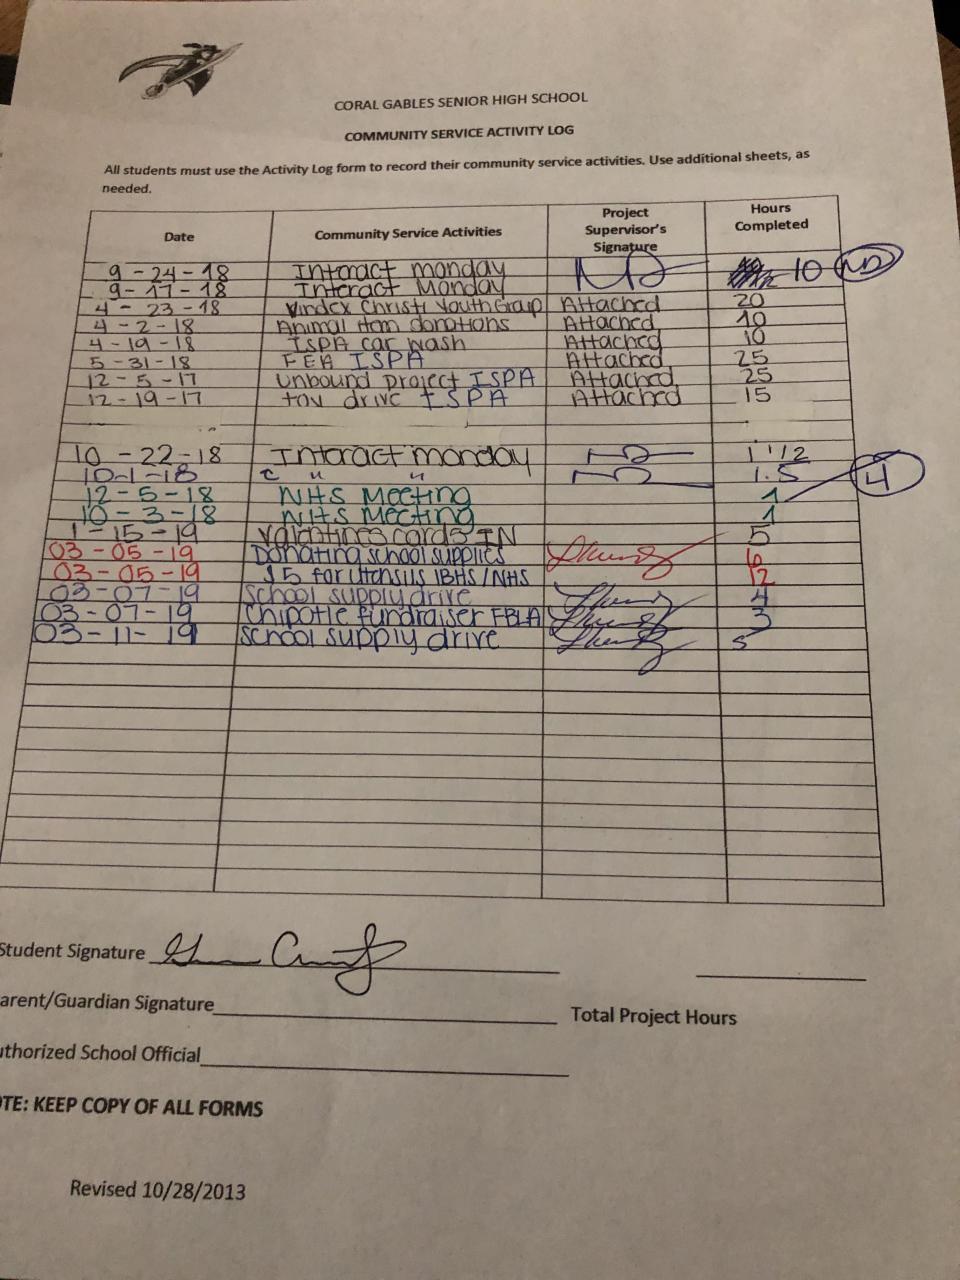 CORAL GABLES SENIOR HIGH SCHOOL
COMMUNITY SERVICE ACTIVITY LOG
All students must use the Activity Log form to record their community service activities. Use additional sheets, as
needed.
Date Community Service Activities Project Supervisor's Signature Hours Completed
9-24-18 Interact monday 10 ND
9-17-18 Interact Monday
4-23-18 Vindex Christi Youth Group Attached 20
4-2-18 Animal donations Attached 10
4-19-18 ISPA car wash Attached 10
5-31-18 FEA ISPA Attached 25
12-5-17 unbound project ISPA Attached 25
12-19-17 toy drive ISPA Attached 15
10-22-18 Interact monday 1 1/2
10-1-18 " " 1.5 4
12-5-18 NHS Meeting 1
10-3-18 NHS Meeting 1
1-15-19 Valentines cards IN 5
03-05-19 Donating school supplies 6
03-05-19 $5 for Utensils IBHS/NHS 12
03-07-19 School supply drive 4
03-07-19 Chipotle fundraiser FBLA 3
03-11-19 School supply drive 5
Student Signature
arent/Guardian Signature
Total Project Hours
uthorized School Official
OTE: KEEP COPY OF ALL FORMS
Revised 10/28/2013